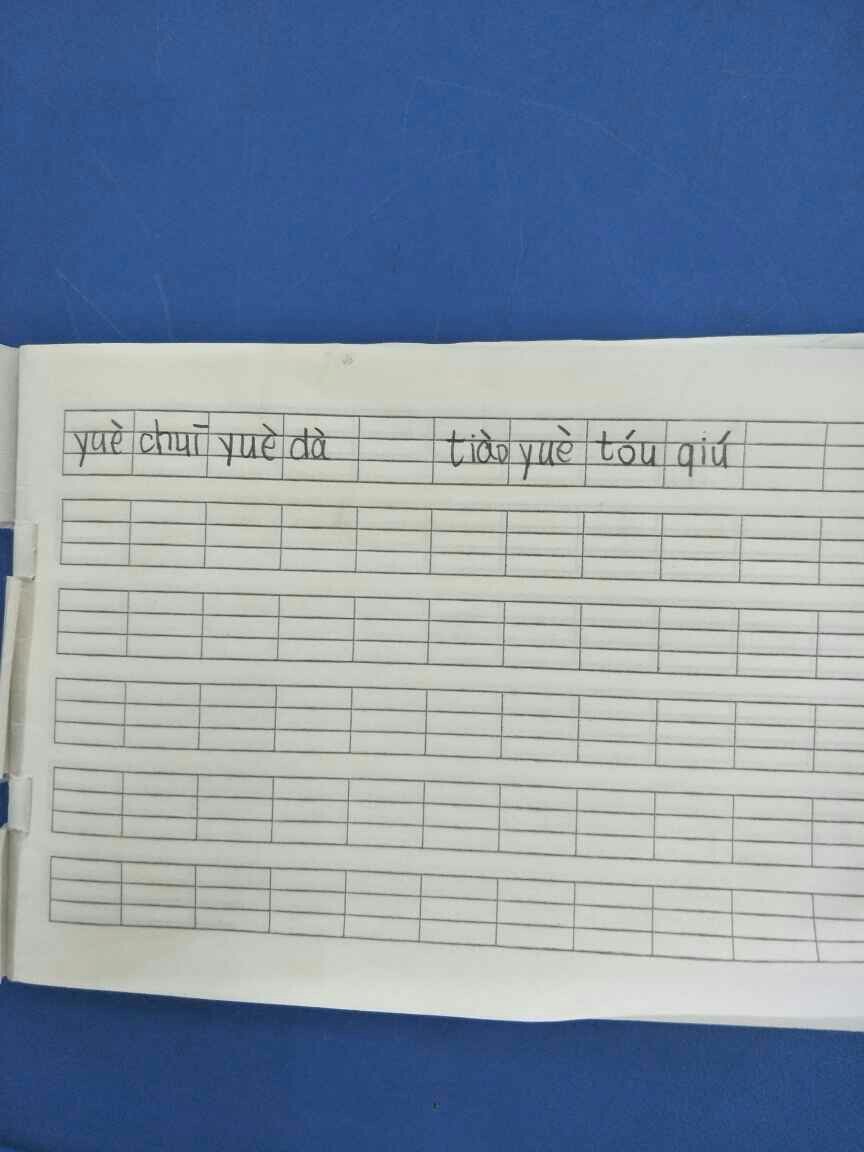 yuè chuī yuè dà tiào yuè tóu qiú